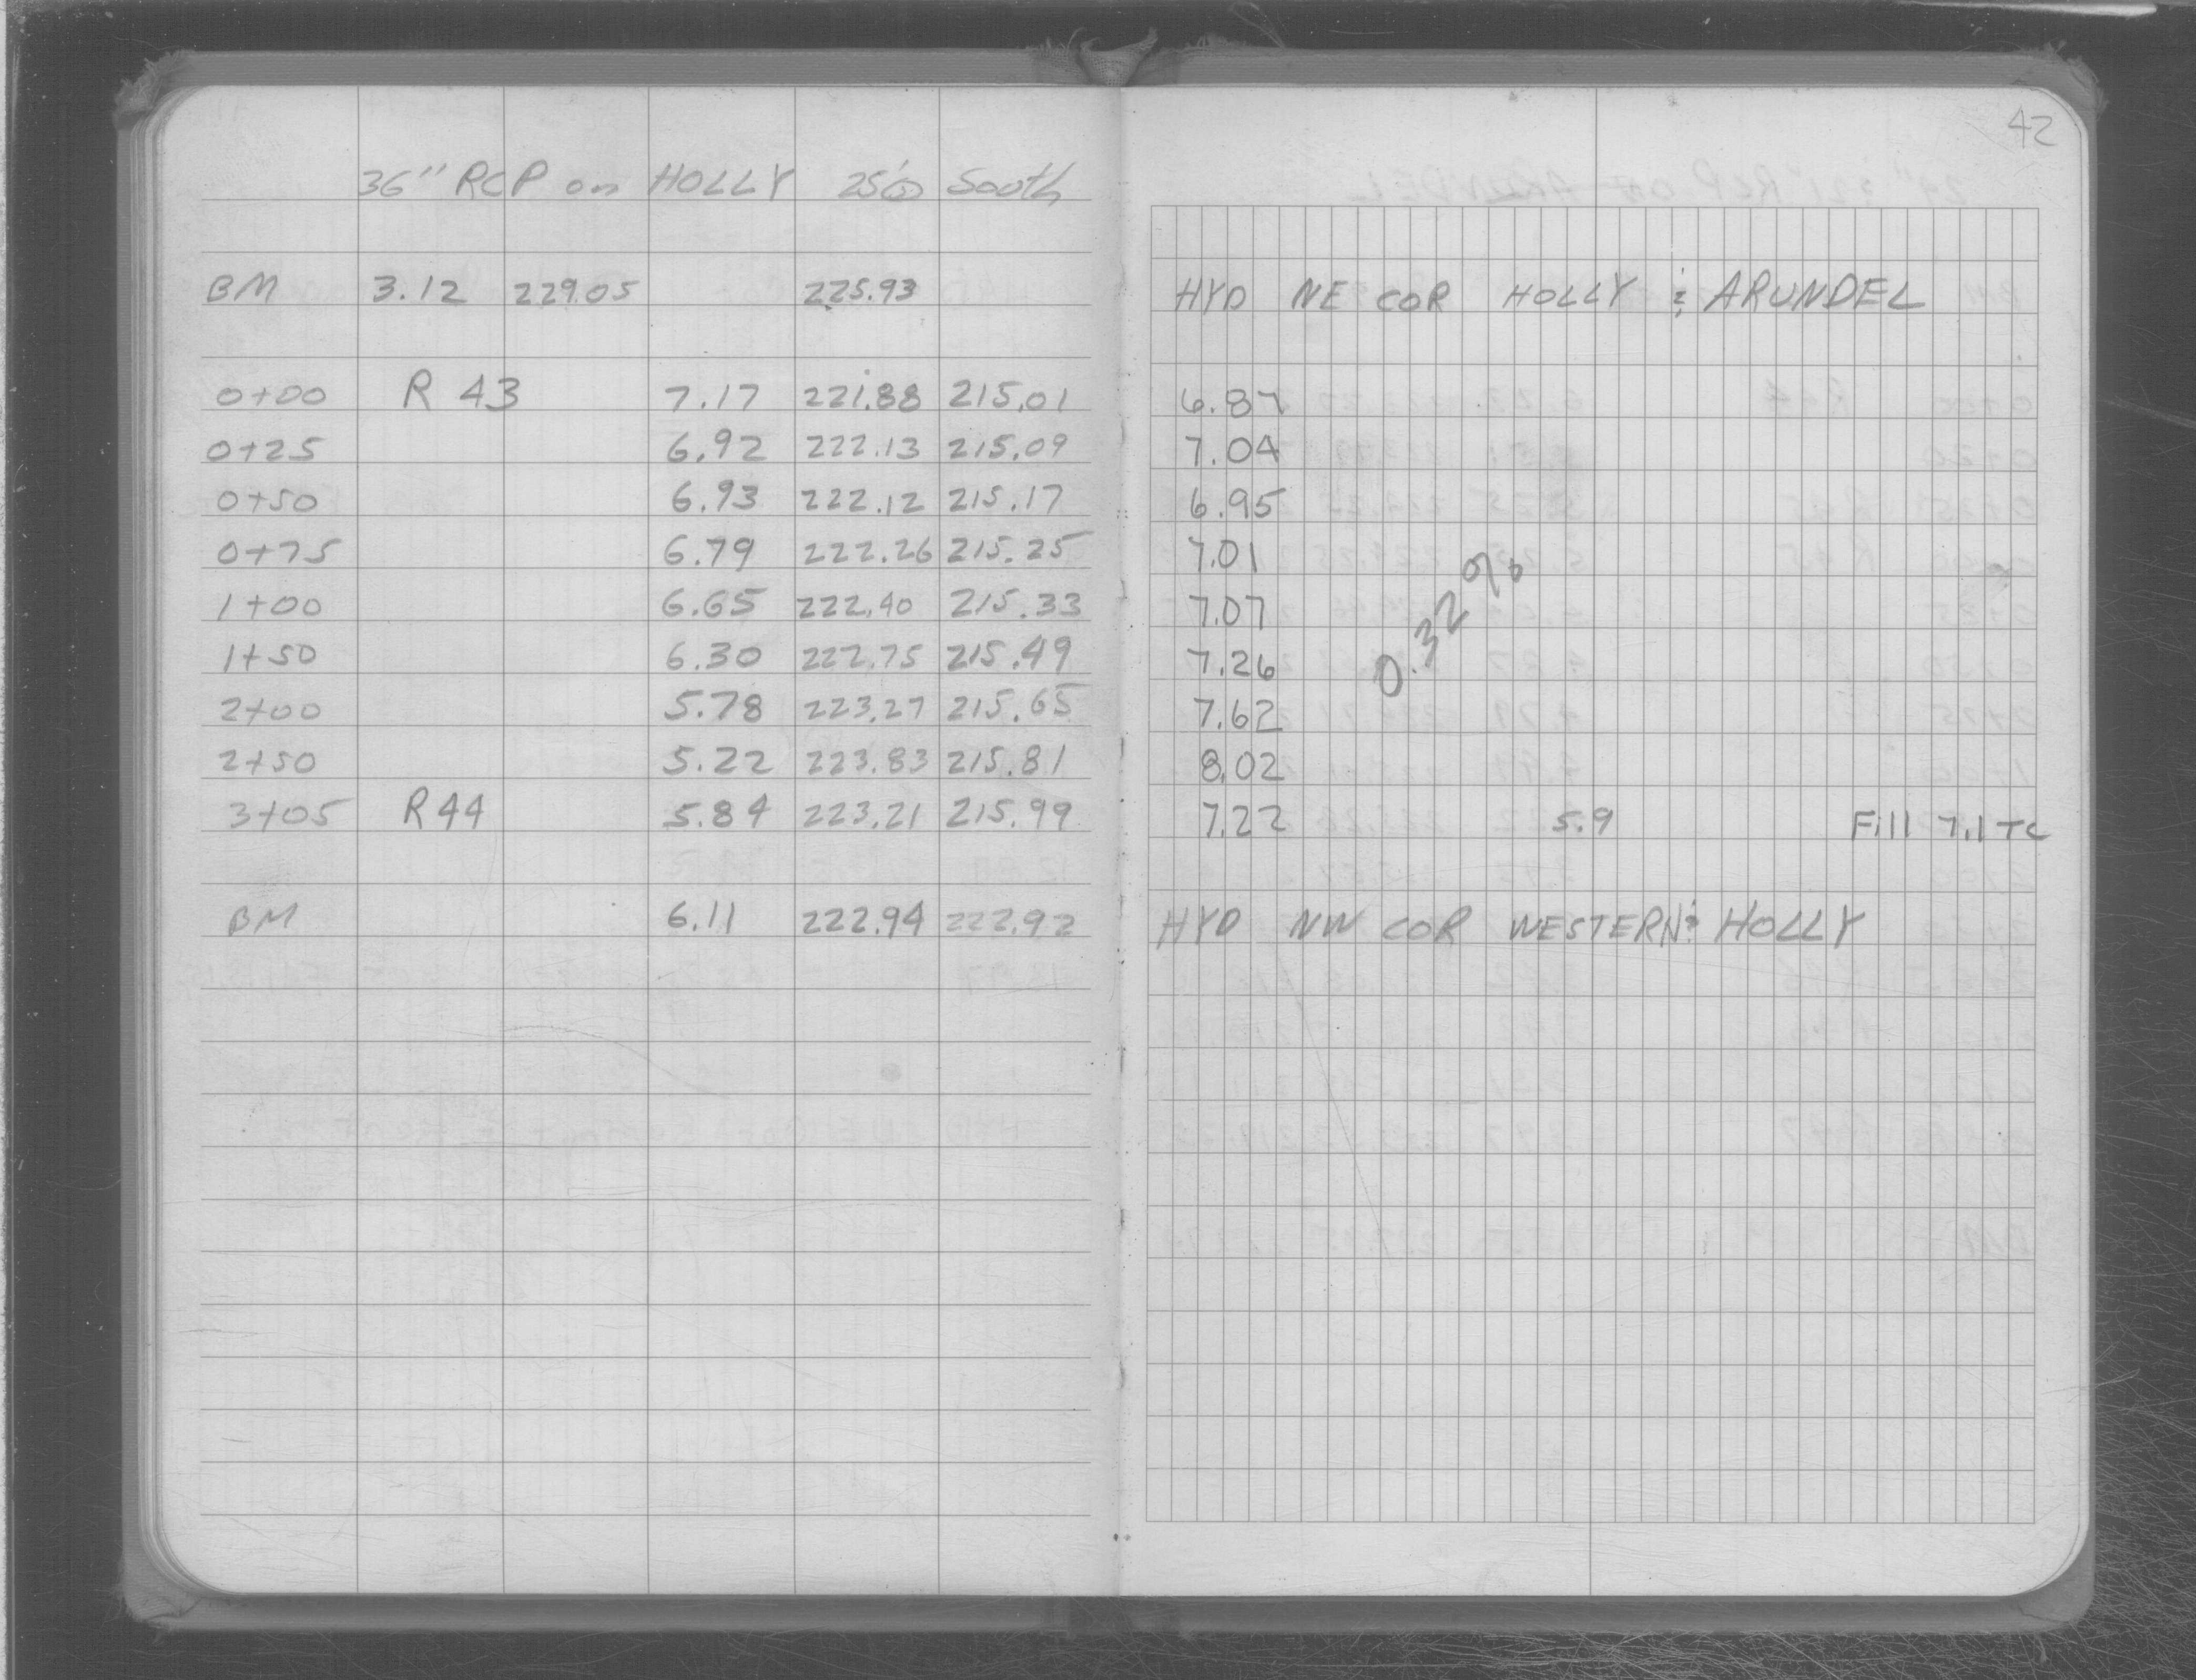 42
36" RCP on HOLLY 25' South
BM 3.12 229.05 225.93 HYD NE COR HOLLY & ARUNDEL
0+00 R 43 7.17 221.88 215.01 6.87
0+25 6.92 222.13 215.09 7.04
0+50 6.93 222.12 215.17 6.95
0+75 6.79 222.26 215.25 7.01
1+00 6.65 222.40 215.33 7.07
0.32%
1+50 6.30 222.75 215.49 7.26
2+00 5.78 223.27 215.65 7.62
2+50 5.22 223.83 215.81 8.02
3+05 R 44 5.84 223.21 215.99 7.22 5.9 Fill 7.1 TC
BM 6.11 222.94 222.92 HYD NW COR WESTERN & HOLLY